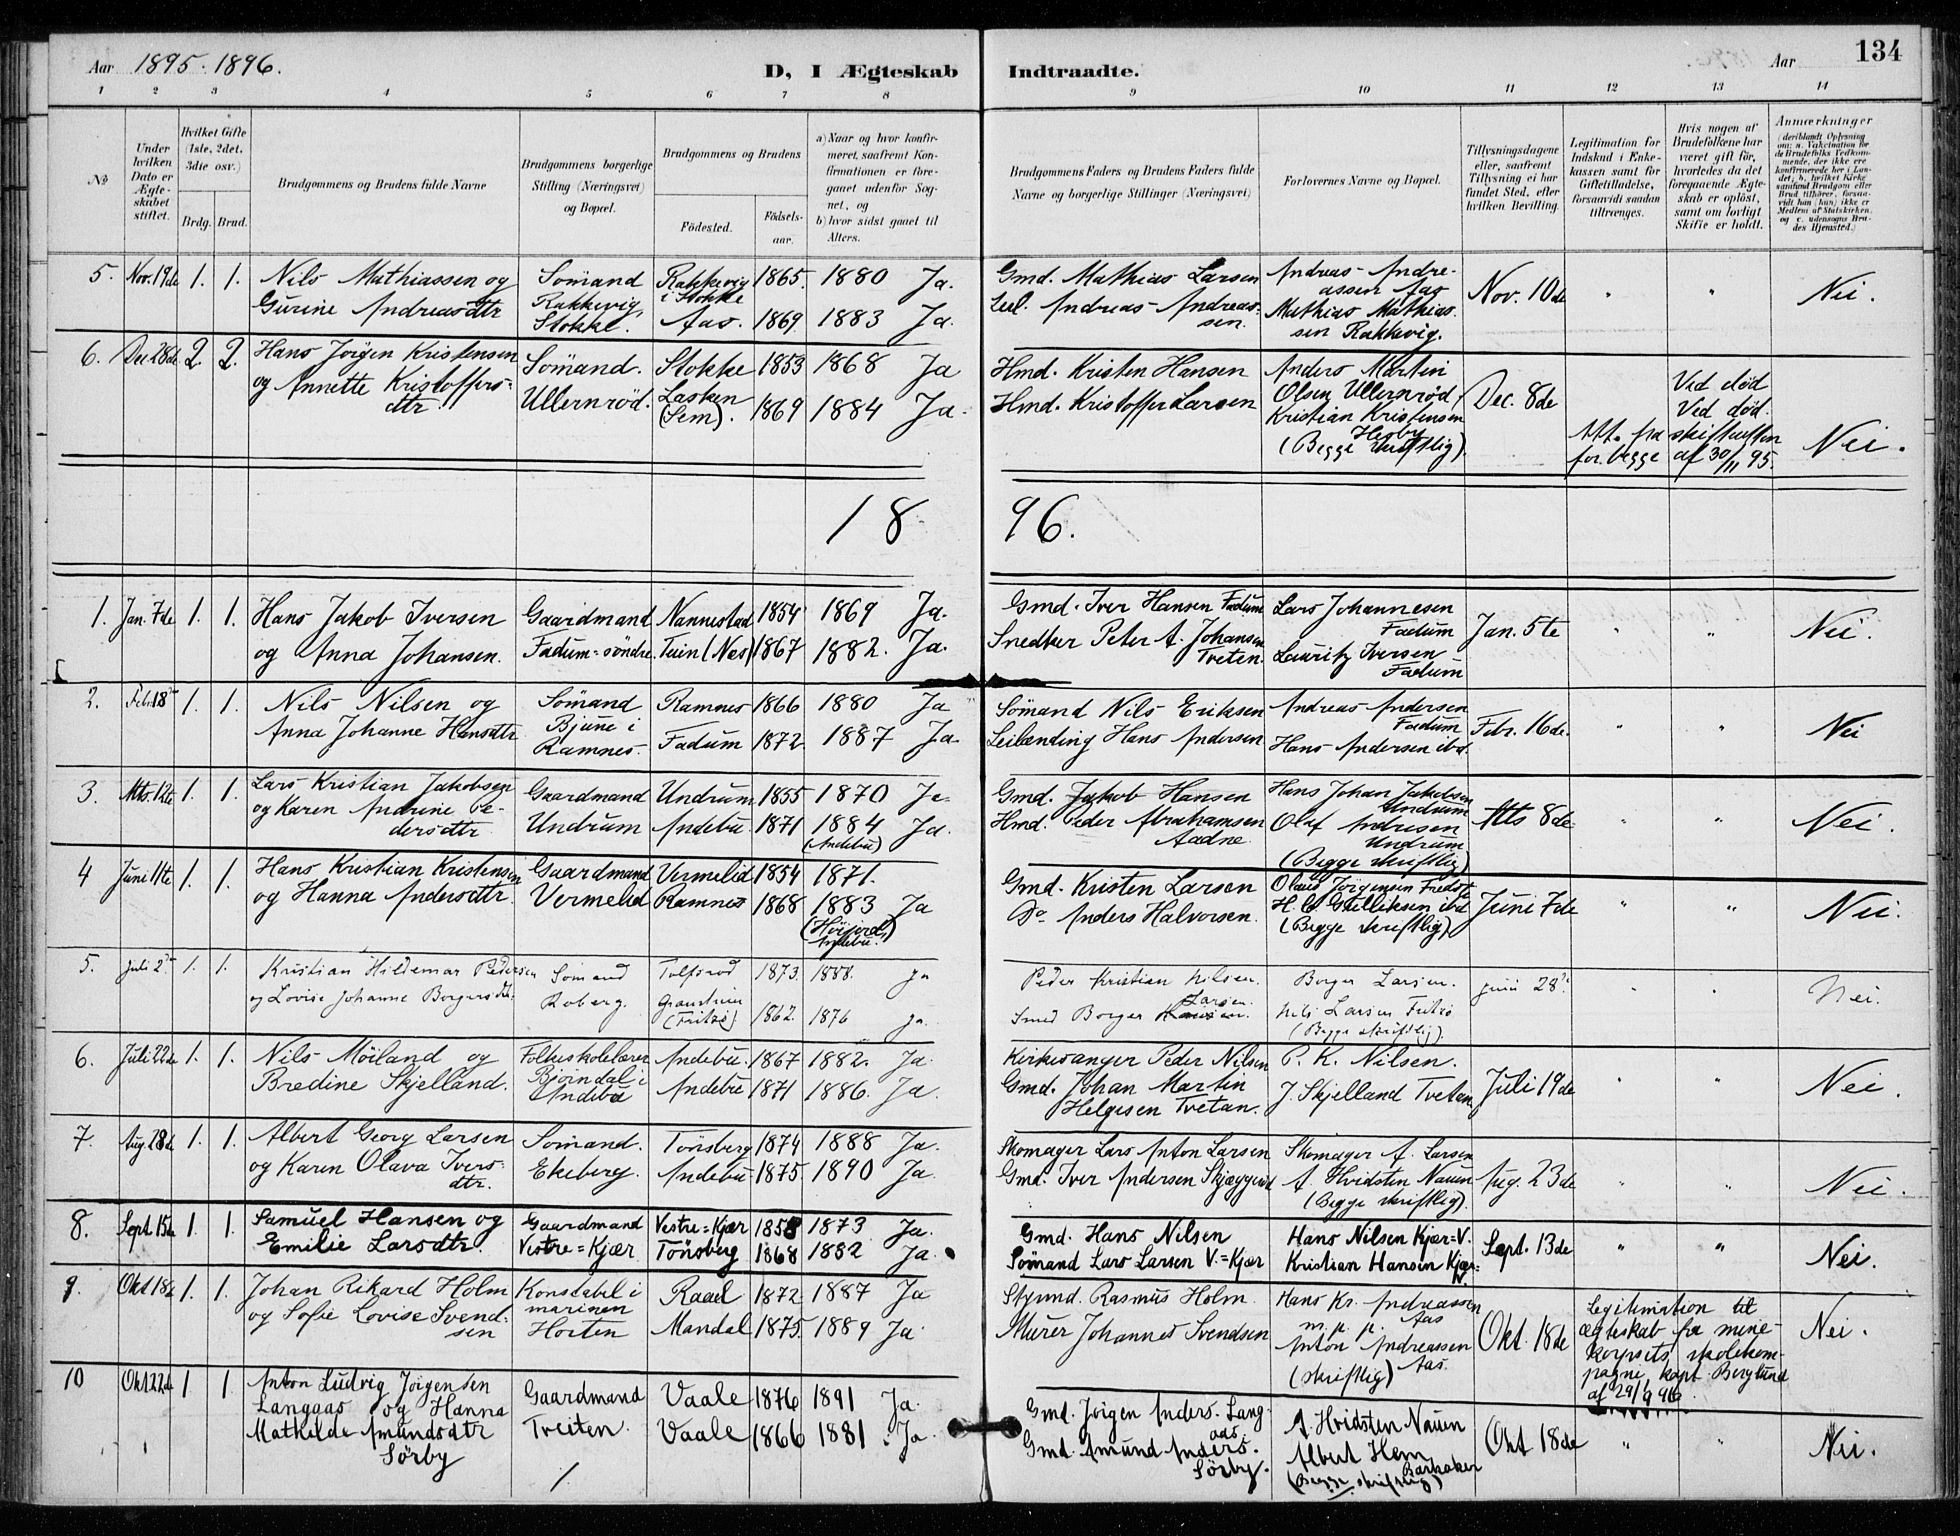 Aar 1895-1896.
D, I Ægteskab Indtraadte.
Aar 134
1 2 3 4 5 6 7 8 9 10 11 12 13 14
No
Under hvilken Dato er Ægteskabet stiftet.
Hvilket Gifte (1ste, 2det, 3die osv.)
Brdg. Brud.
Brudgommens og Brudens fulde Navne
Brudgommens borgerlige Stilling (Næringsvei) og Bopæl.
Brudgommens og Brudens
Fødested. Fødselsaar.
a) Naar og hvor konfirmeret, saafremt Konfirmationen er foregaaet udenfor Sognet, og
b) hvor sidst gaaet til Alters.
Brudgommens Faders og Brudens Faders fulde Navne og borgerlige Stillinger (Næringsvei).
Forlovernes Navne og Bopæl.
Tillysningsdagene eller, saafremt Tillysning ei har fundet Sted, efter hvilken Bevilling.
Legitimation for Indskud i Enkekassen samt for Giftetilladelse, forsaavidt saadan tiltrænges.
Hvis nogen af Brudefolkene har været gift før, hvorledes da det foregaaende Ægteskab er opløst, samt om lovligt Skifte er holdt.
Anmærkninger
(deriblandt Oplysning om: a. Vakcination for de Brudefolks Vedkommende, der ikke ere konfirmerede her i Landet; b. hvilket Kirkesamfund Brudgom eller Brud tilhører, forsaavidt han (hun) ikke er Medlem af Statskirken, og c. udensogns Brudes Hjemsted.)
5. Nov. 19de 1. 1. Nils Mathiassen og Sømand Rakkevig 1865. 1880 Ja. Gmd. Mathias Larsen Andreas Andre-
Gurine Andreasdtr Rakkevig i Stokke assen Aas Nov. 10de " " Nei.
Stokke. Aas. 1869 1883 Ja. Leil. Andreas Andreas- Mathias Mathias-
sen. sen Rakkevig.
6. Dec 28de 2. 2. Hans Jørgen Kristensen Sømand. Stokke 1853 1868 Ja Hmd. Kristen Hansen Anders Martin Ved død
og Annette Kristoffers- Ullernrød. Lasken 1869 1884 Ja. Hmd. Kristoffer Larsen Olsen Ullernrød, Dec. 8de Ved død.
dtr (Sem). Kristian Kristensen Att. fra skifteretten
(Begge skriftlig). for begge af 30/11 95. Nei.
18 96.
1. Jan. 7de 1. 1. Hans Jakob Iversen Gaardmand Nannestad 1854 1869 Ja. Gmd. Iver Hansen Fadum Lars Johannesen
og Anna Johansen. Fadum-søndre. Tuin (Nes) 1867 1882. Ja. Snedker Peter A. Johansen Fadum Jan. 5te " " Nei.
Tveten. Lauritz Iversen
Fadum
2. Febr. 18de 1. 1. Nils Nilsen og Sømand Ramnes 1866 1880 Ja Sømand Nils Eriksen Andreas Andersen
Anna Johanne Hansdtr Bjune i Fadum Febr. 16de. " " Nei
Ramnes. Fadum 1872 1887 Ja Leilænding Hans Andersen Hans Andersen ibd.
3. Mts. 12te 1. 1. Lars Kristian Jakobsen Gaardmand Undrum 1855 1870 Ja. Gmd. Jakob Hansen Hans Johan Jakobsen
og Karen Andrine Pe- Undrum Andebu 1871 1884 Ja. Hmd. Peder Abrahamsen Undrum Mts 8de " " Nei.
dersdtr (Andebu) Aadne. Olaf Andresen
Undrum
(Begge skriftlig)
4 Juni 11te 1. 1. Hans Kristian Kristensen Gaardmand Vermelid 1854 1871. Gmd. Kristen Larsen Olaus Jørgensen
og Hanna Andersdtr. Vermelid Ramnes 1868 1883 Ja Do Anders Halvorsen. H. C. Gulliksen ibd Juni 7de " " Nei.
(Høijord, Andebu.) (Begge skriftlig)
5. Juli 2den 1. 1. Kristian Hildemar Pedersen Sømand Tolfsrød 1873. 1888. Ja Peder Kristian Nilsen. Borger Larsen. Juni 28de " " Nei.
og Lovise Johanne Borgersdtr. Roberg. 1862. 1876 Ja. Smed Borger Larsen. Nils Larsen
(Begge skriftlig).
6. Juli 22de 1. 1. Nils Möiland og Folkeskolelærer Andebu 1867 1882. Ja. Kirkesanger Peder Nilsen P. K. Nilsen.
Bredine Skjelland. Bjørndal i Andebu 1871 1886. Ja. Gmd. Johan Martin J. Skjelland Tvetan Juli 19de " " Nei.
Andebu Helgesen Tvetan.
7. Aug. 28de 1. 1. Albert Georg Larsen Sømand. Tønsberg 1874 1888 Ja. Skomager Lars Anton Larsen Skomager A. Larsen
og Karen Olava Ivers- Ekeberg. Andebu 1875. 1890 Ja Gmd. Iver Andersen Skjæggerød A. Hvidsten Nauen Aug. 23de " " Nei.
dtr. (Begge skriftlig).
8. Sept. 15de 1. 1. Samuel Hansen og Gaardmand Vestre=Kjær 1858 1873 Ja. Gmd. Hans Nilsen Hans Nilsen Kjær=V.
Emilie Larsdtr. Vestre=Kjær Tønsberg 1868 1882 Ja. Sømand Lars Larsen V.=Kjær Kristian Hansen Kjær=V. Sept. 13de " " Nei.
9. Okt 18de 1. 1. Johan Rikard Holm Konstabel i Raael 1872 1887 Ja Rasmus Holm. Hans Kr. Andreassen Legitimation til
og Sofie Lovise Svend- marinen Aas ægteskab fra mine-
sen Horten Mandal 1875. 1889 Ja Murer Johannes Svendsen Anton Andreassen Okt. 18de korpsets skolekom- Nei.
(skriftlig) Aas. pagni, kapt. Berglund
af 29/9 96.
10 Okt. 22de 1 1. Anton Ludvig Jørgensen Gaardmand Vaale 1876 1891 Ja. Gmd. Jørgen Anders. Lang- A. Hvidsten Nauen
Langaas og Hanna Treiten. Vaale 1866 1881 Ja. aas. Albert Hem Okt 18de " " Nei.
Mathilde Amundsdtr Gmd. Amund Anders. Barkaker
Sørby Sørby. (Begge skriftlig)